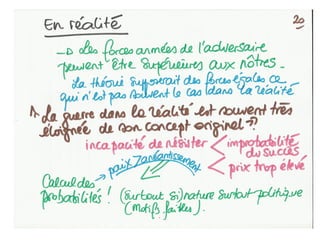 En réalité
20
→ Les forces armées de l'adversaire
peuvent être supérieures aux nôtres.
La théorie supposerait des forces égales ce
qui n'est pas souvent le cas dans la réalité
1. La guerre dans la réalité est souvent très
éloignée de son concept originel
incapacité de résister
improbabilité
du succès
prix trop élevé
paix ≠ anéantissement
Calcul des
probabilités !
(surtout si) nature surtout politique
(motifs faibles).